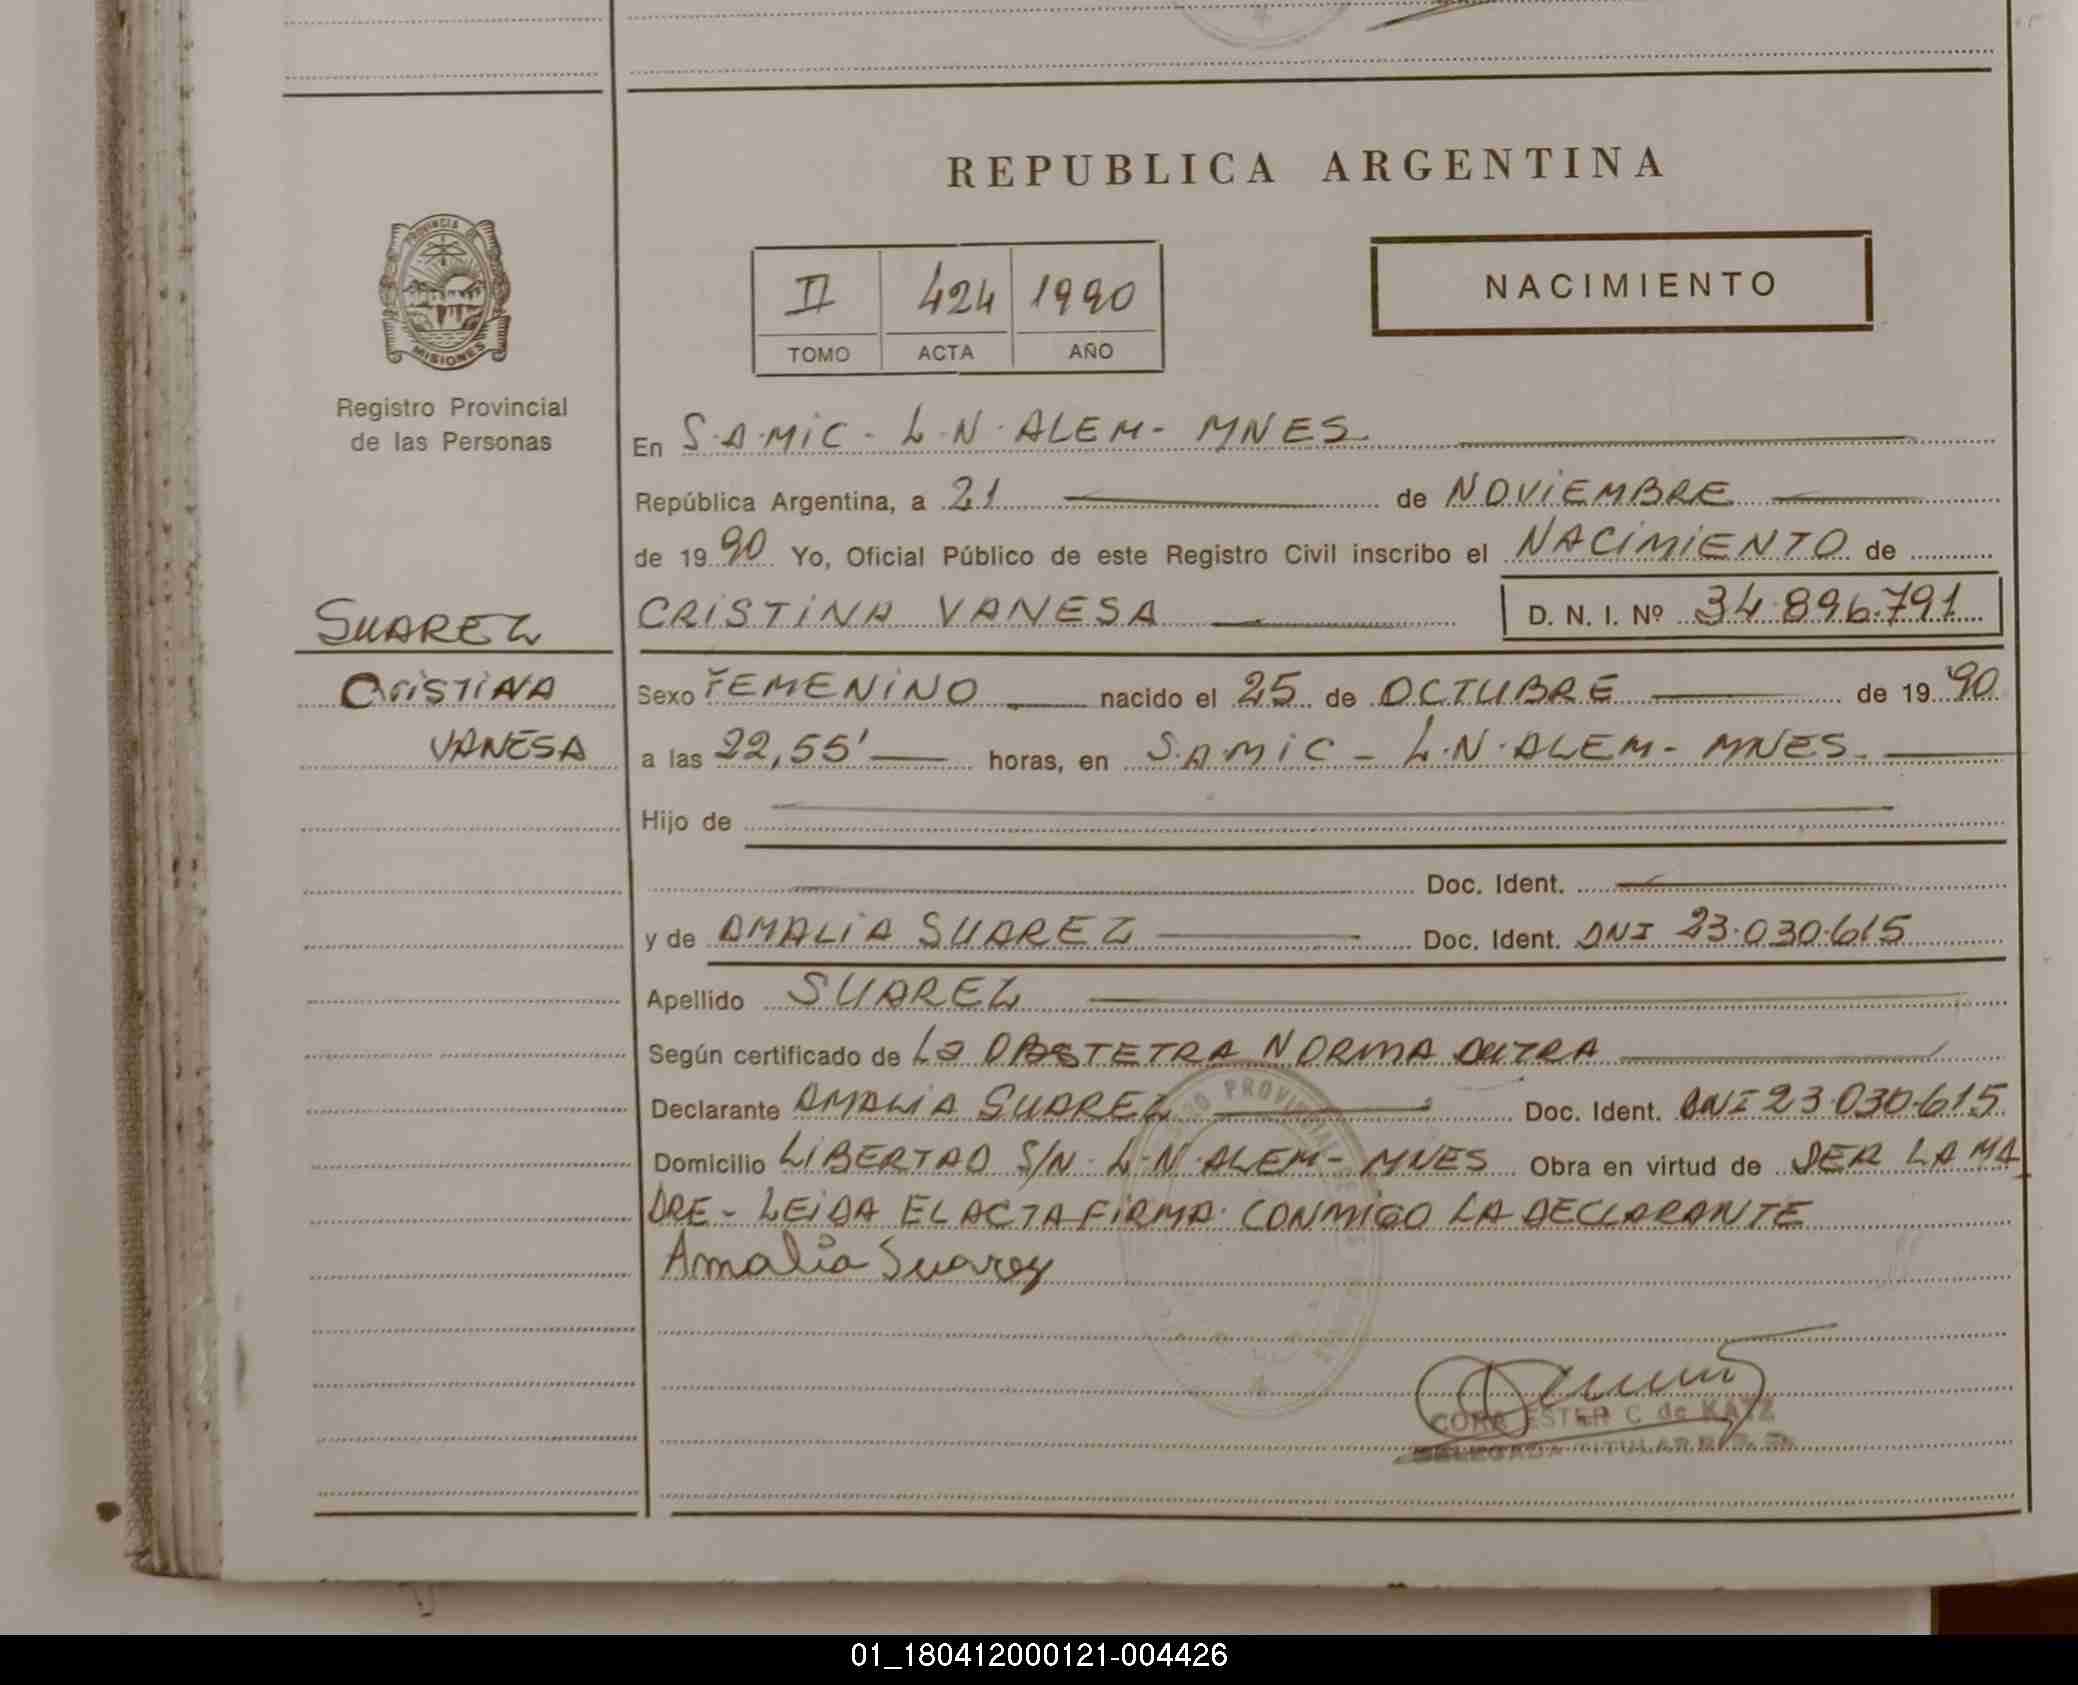 REPUBLICA ARGENTINA
PROVINCIA DE
MISIONES
Registro Provincial
de las Personas
II 424 1990
TOMO ACTA AÑO
NACIMIENTO
En S.A.MIC - L.N.ALEM - MNES
República Argentina, a 21 de NOVIEMBRE
de 1990 Yo, Oficial Público de este Registro Civil inscribo el NACIMIENTO de
CRISTINA VANESA D. N. I. Nº 34.896.791
SUAREZ
CRISTINA
VANESA
Sexo FEMENINO nacido el 25 de OCTUBRE de 1990
a las 22,55' horas, en S.A.MIC - L.N.ALEM - MNES.
Hijo de
Doc. Ident.
y de AMALIA SUAREZ Doc. Ident. DNI 23.030.615
Apellido SUAREZ
Según certificado de La OBSTETRA NORMA DUTRA
Declarante AMALIA SUAREZ Doc. Ident. DNI 23.030.615
Domicilio LIBERTAD S/N. L.N.ALEM - MNES Obra en virtud de SER LA MA
DRE - LEIDA EL ACTA FIRMA CONMIGO LA DECLARANTE
Amalia Suarez
CORA ESTER C de KATZ
DELEGADA TITULAR
01_180412000121-004426